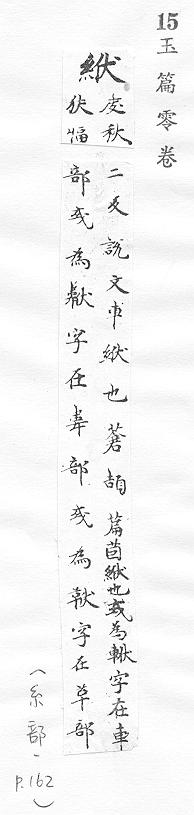 15 玉篇零卷
絥
處秋
伏愊
二反說文車絥也蒼頡篇茵絥也或為字在車
部或為字在韋部或為字在草部
(糸部-
P.162)